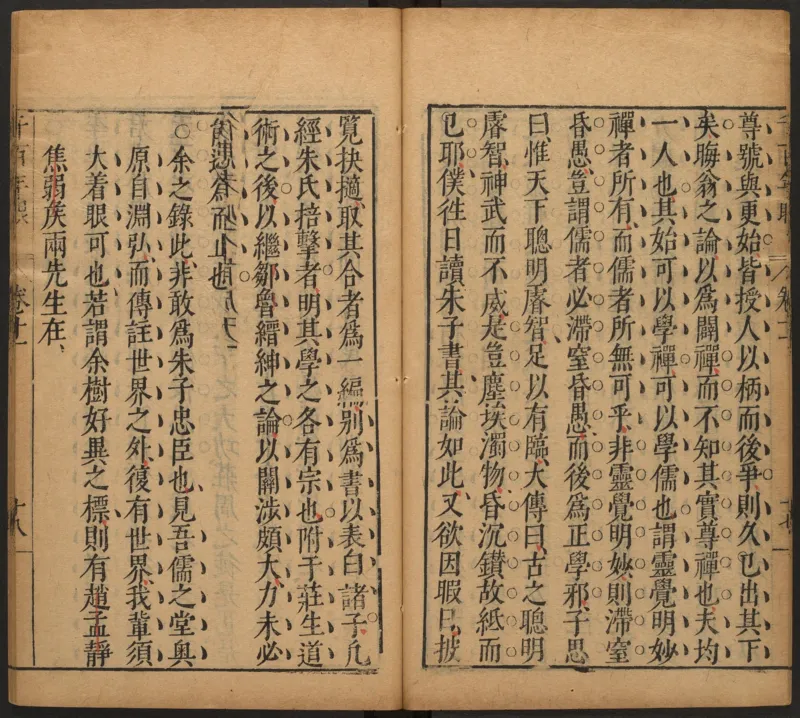 尊號與更始皆授人以柄而後爭則久已出其下
矣晦翁之論以為闢禪而不知其實尊禪也夫均
一人也其始可以學禪可以學儒也謂靈覺明妙
禪者所有而儒者所無可乎非靈覺明妙則滯窒
昏愚豈謂儒者必滯窒昏愚而後為正學耶子思
曰惟天下聰明睿智足以有臨大傳曰古之聰明
睿智神武而不殺是豈塵埃濁物昏沉鑽故紙而
已耶僕徃日讀朱子書其論如此又欲因暇日披
覽抉擿取其合者為一編別為書以表白諸子凡
經朱氏掊擊者明其學之各有宗也附于莊生道
術之後以繼鄒魯縉紳之論以關涉頗大力未必
為而止也
○余之錄此非敢為朱子忠臣也見吾儒之堂奧
原自淵弘而傳註世界之外復有世界我輩須
大着眼可也若謂余樹好異之標則有趙孟靜
焦弱侯兩先生在
卷十一
十八